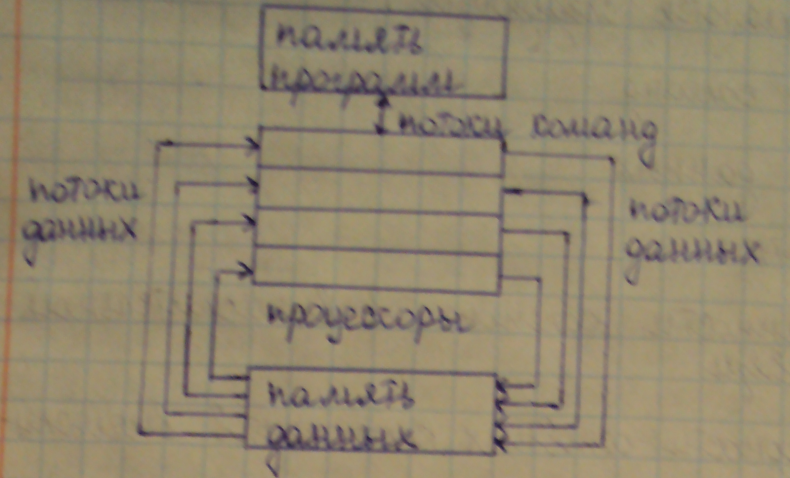 память
программ
потоки команд
потоки
данных
потоки
данных
процессоры
память
данных